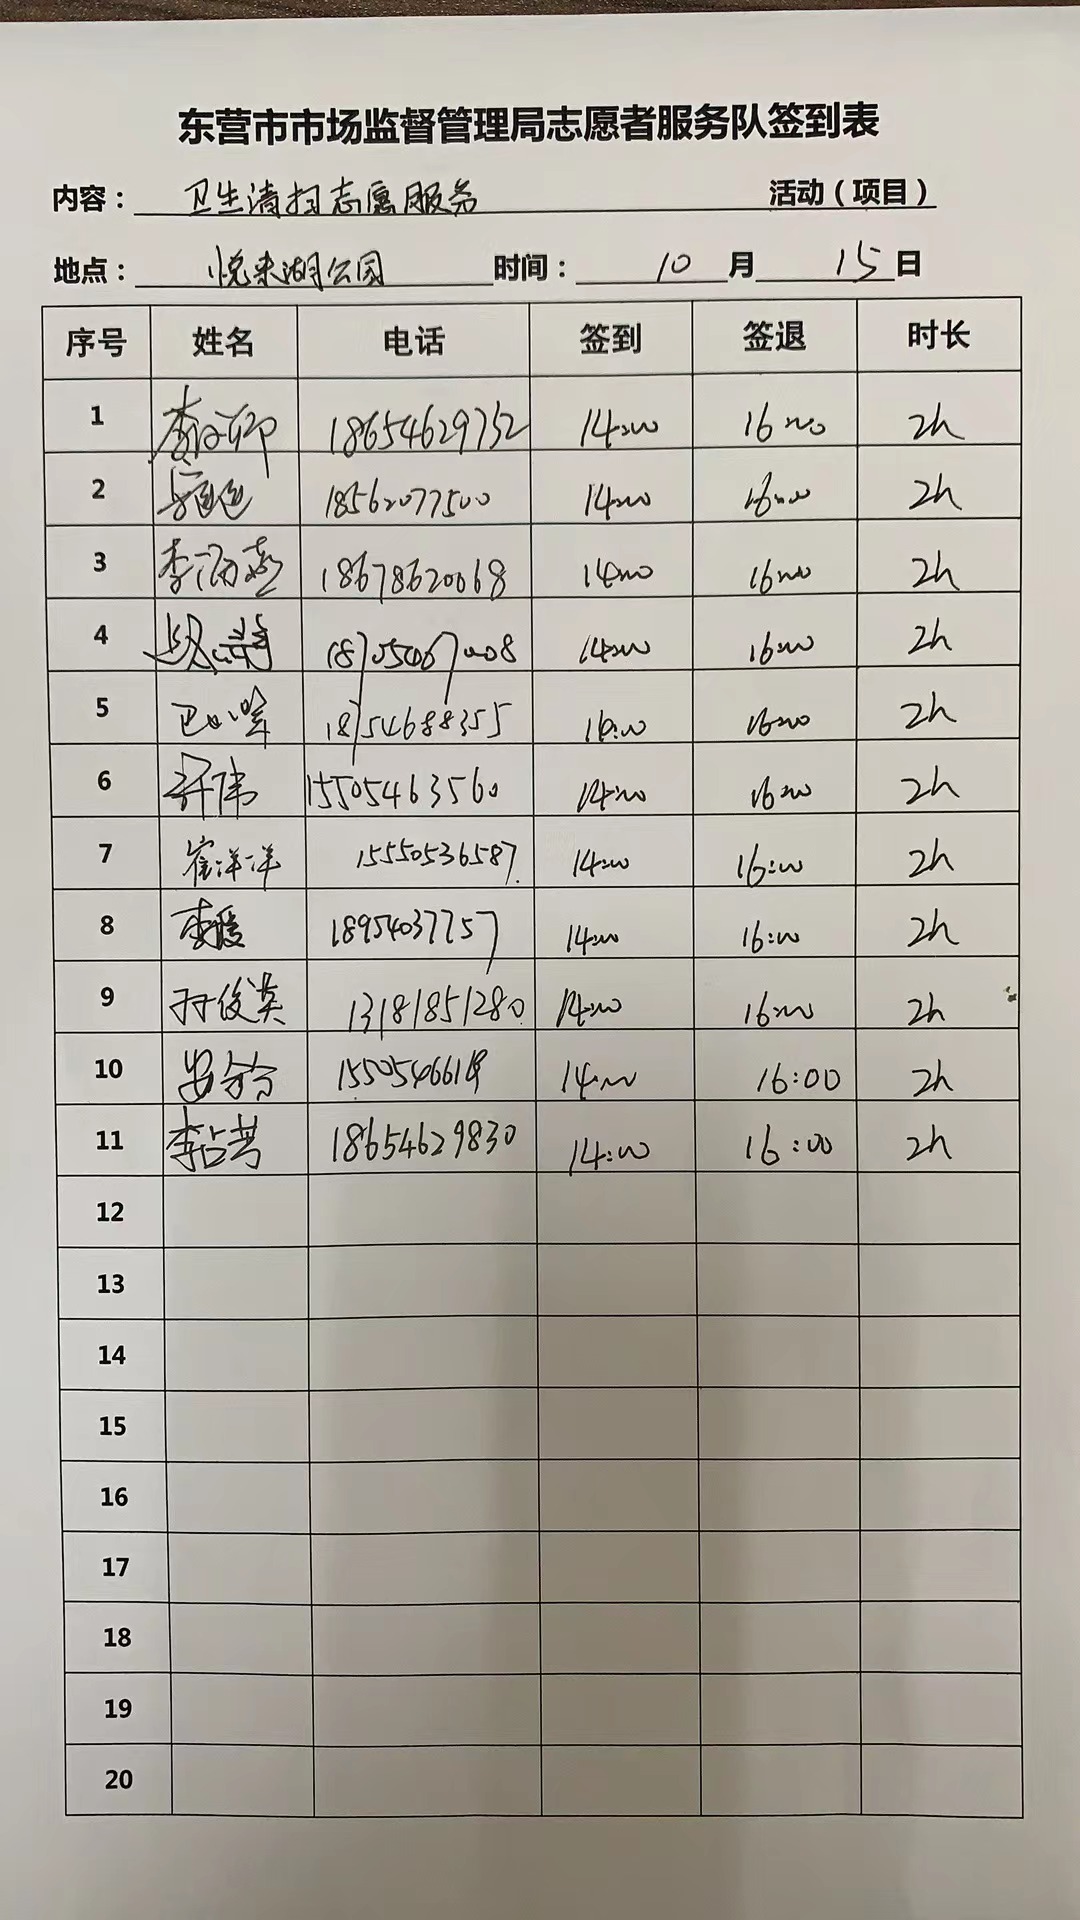 东营市市场监督管理局志愿者服务队签到表
内容： 卫生清扫志愿服务 活动（项目）
地点： 悦来湖公园 时间： 10 月 15 日
序号 姓名 电话 签到 签退 时长
1 18654629752 14:00 16:00 2h
2 18562077500 14:00 16:00 2h
3 李海燕 18678620068 14:00 16:00 2h
4 14:00 16:00 2h
5 18754688355 14:00 16:00 2h
6 15505463560 14:00 16:00 2h
7 崔洋洋 15550536587 14:00 16:00 2h
8 李媛 18954037757 14:00 16:00 2h
9 孙俊英 13181851280 14:00 16:00 2h
10 14:00 16:00 2h
11 李占芳 18654629830 14:00 16:00 2h
12
13
14
15
16
17
18
19
20